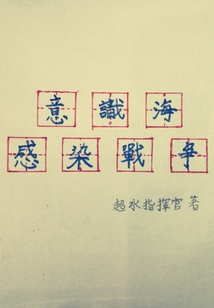 意識海
感染戰爭
超水指揮官 著